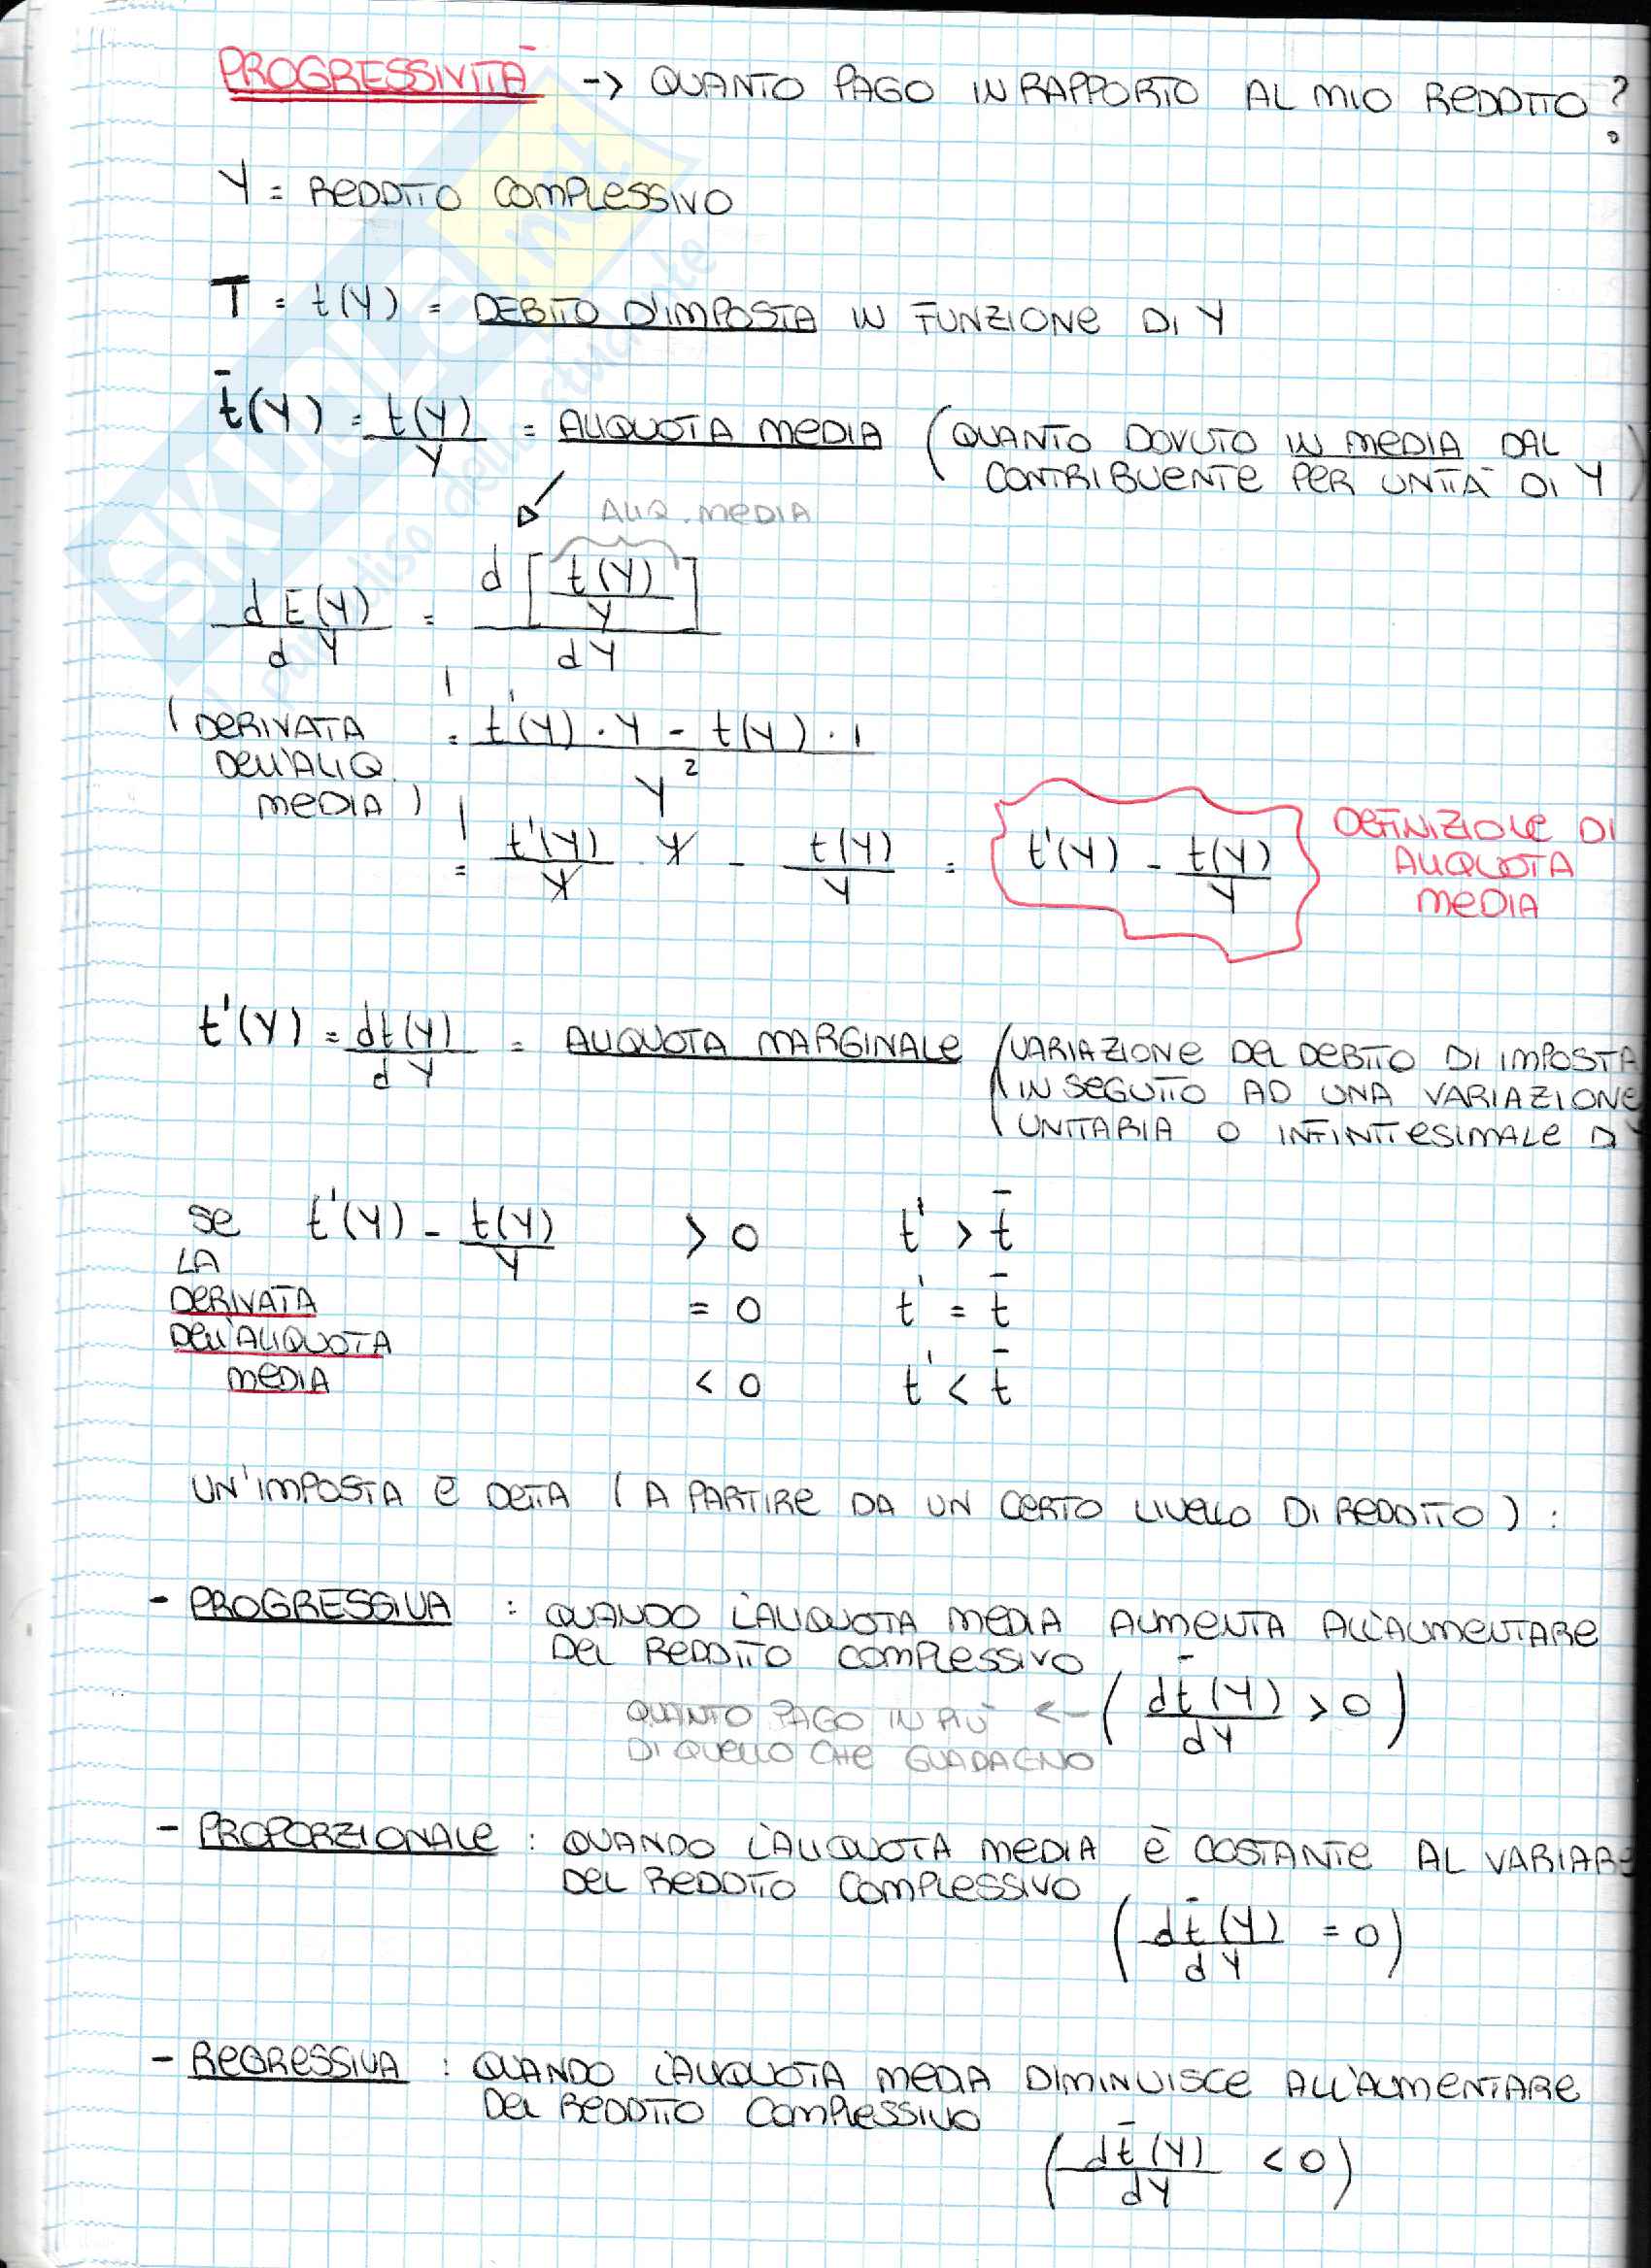 PROGRESSIVITÀ -> QUANTO PAGO IN RAPPORTO AL MIO REDDITO?
Y = REDDITO COMPLESSIVO
T = t(Y) = DEBITO D'IMPOSTA IN FUNZIONE DI Y
t̄(Y) = t(Y)/Y = ALIQUOTA MEDIA (QUANTO DOVUTO IN MEDIA DAL
CONTRIBUENTE PER UNITÀ DI Y)
ALIQ. MEDIA
d t̄(Y)/dY = d[t(Y)/Y]/dY
(DERIVATA
DELL'ALIQ.
MEDIA)
= t'(Y) · Y - t(Y) · 1 / Y²
= t'(Y)/Y · Y - t(Y)/Y = t'(Y) - t(Y)/Y
DEFINIZIOLE DI
ALIQUOTA
MEDIA
t'(Y) = dt(Y)/dY = ALIQUOTA MARGINALE (VARIAZIONE DEL DEBITO DI IMPOSTA
IN SEGUITO AD UNA VARIAZIONE
UNITARIA O INFINITESIMALE D
SE t'(Y) - t(Y)/Y > 0 t' > t̄
LA
DERIVATA = 0 t' = t̄
DELL'ALIQUOTA
MEDIA < 0 t' < t̄
UN'IMPOSTA È DETTA (A PARTIRE DA UN CERTO LIVELLO DI REDDITO) :
- PROGRESSIVA : QUANDO L'ALIQUOTA MEDIA AUMENTA ALL'AUMENTARE
DEL REDDITO COMPLESSIVO
QUANTO PAGO IN PIÙ <- (dt̄(Y)/dY > 0)
DI QUELLO CHE GUADAGNO
- PROPORZIONALE : QUANDO L'ALIQUOTA MEDIA È COSTANTE AL VARIARE
DEL REDDITO COMPLESSIVO
(dt̄(Y)/dY = 0)
- REGRESSIVA : QUANDO L'ALIQUOTA MEDIA DIMINUISCE ALL'AUMENTARE
DEL REDDITO COMPLESSIVO
(dt̄(Y)/dY < 0)